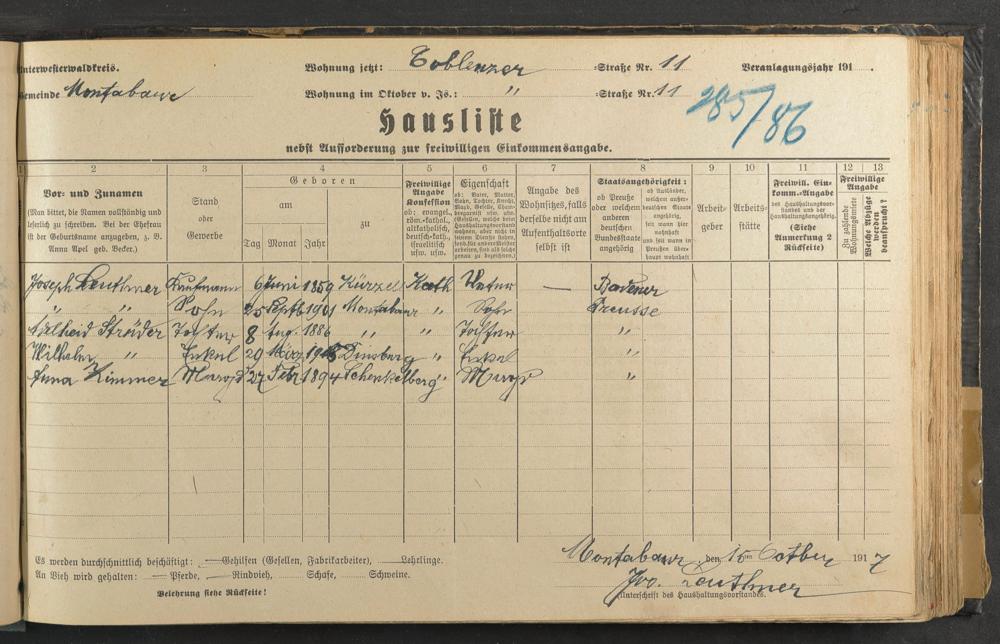 Unterwesterwaldkreis. Wohnung jetzt: Coblenzer Straße Nr. 11 Veranlagungsjahr 191
Gemeinde Montabaur Wohnung im Oktober v. Js.: " Straße Nr. 11
285/86
Hausliste
nebst Aufforderung zur freiwilligen Einkommensangabe.
1 2 3 4 5 6 7 8 9 10 11 12 13
Vor- und Zunamen
(Man bittet, die Namen vollständig und
leserlich zu schreiben. Bei der Ehefrau
ist der Geburtsname anzugeben, z. B.
Anna Apel geb. Becker.)
Stand
oder
Gewerbe
Geboren
am
zu
Tag Monat Jahr
Freiwillige
Angabe
Konfession
ob: evangel.,
röm.-kathol.,
altkatholisch,
deutsch-kath.,
israelitisch
usw. usw.
Eigenschaft
Angabe des
Wohnsitzes, falls
derselbe nicht am
Aufenthaltsorte
selbst ist
Staatsangehörigkeit:
ob Preuße
oder welchem
anderen
deutschen
Bundesstaate
angehörig
ob Ausländer,
welchem außer-
deutschen Staate
angehörig,
seit wann hier
wohnhaft
und seit wann in
Preußen über-
haupt wohnhaft
Arbeit-
geber
Arbeits-
stätte
Freiwill. Ein-
komm.-Angabe
des Haushaltungsvor-
standes und der
Haushaltungsangehörig.
(Siehe
Anmerkung 2
Rückseite)
Freiwillige
Angabe
Zu zahlende
Wohnungsmiete
Welche Abzüge
werden
beansprucht?
Joseph Leuthner Kaufmann 6 Juni 1859 Kürzel Kath Vater — Badener
" " Sohn 25 Septb 1901 Montabaur " Sohn Preusse
Adelheid Ströder Tochter 8 Aug. 1886 " " Tochter "
Wilhelm " Enkel 20 März Dinsberg " Enkel "
Anna Kimmer Magd 27 Febr 1894 Schenkelberg " Magd "
Es werden durchschnittlich beschäftigt: — Gehilfen (Gesellen, Fabrikarbeiter), — Lehrlinge.
An Vieh wird gehalten: — Pferde, — Rindvieh, Schafe, Schweine.
Belehrung siehe Rückseite!
Montabaur, den 15ten Octber 1917
Jos. Leuthner
(Unterschrift des Haushaltungsvorstandes.)